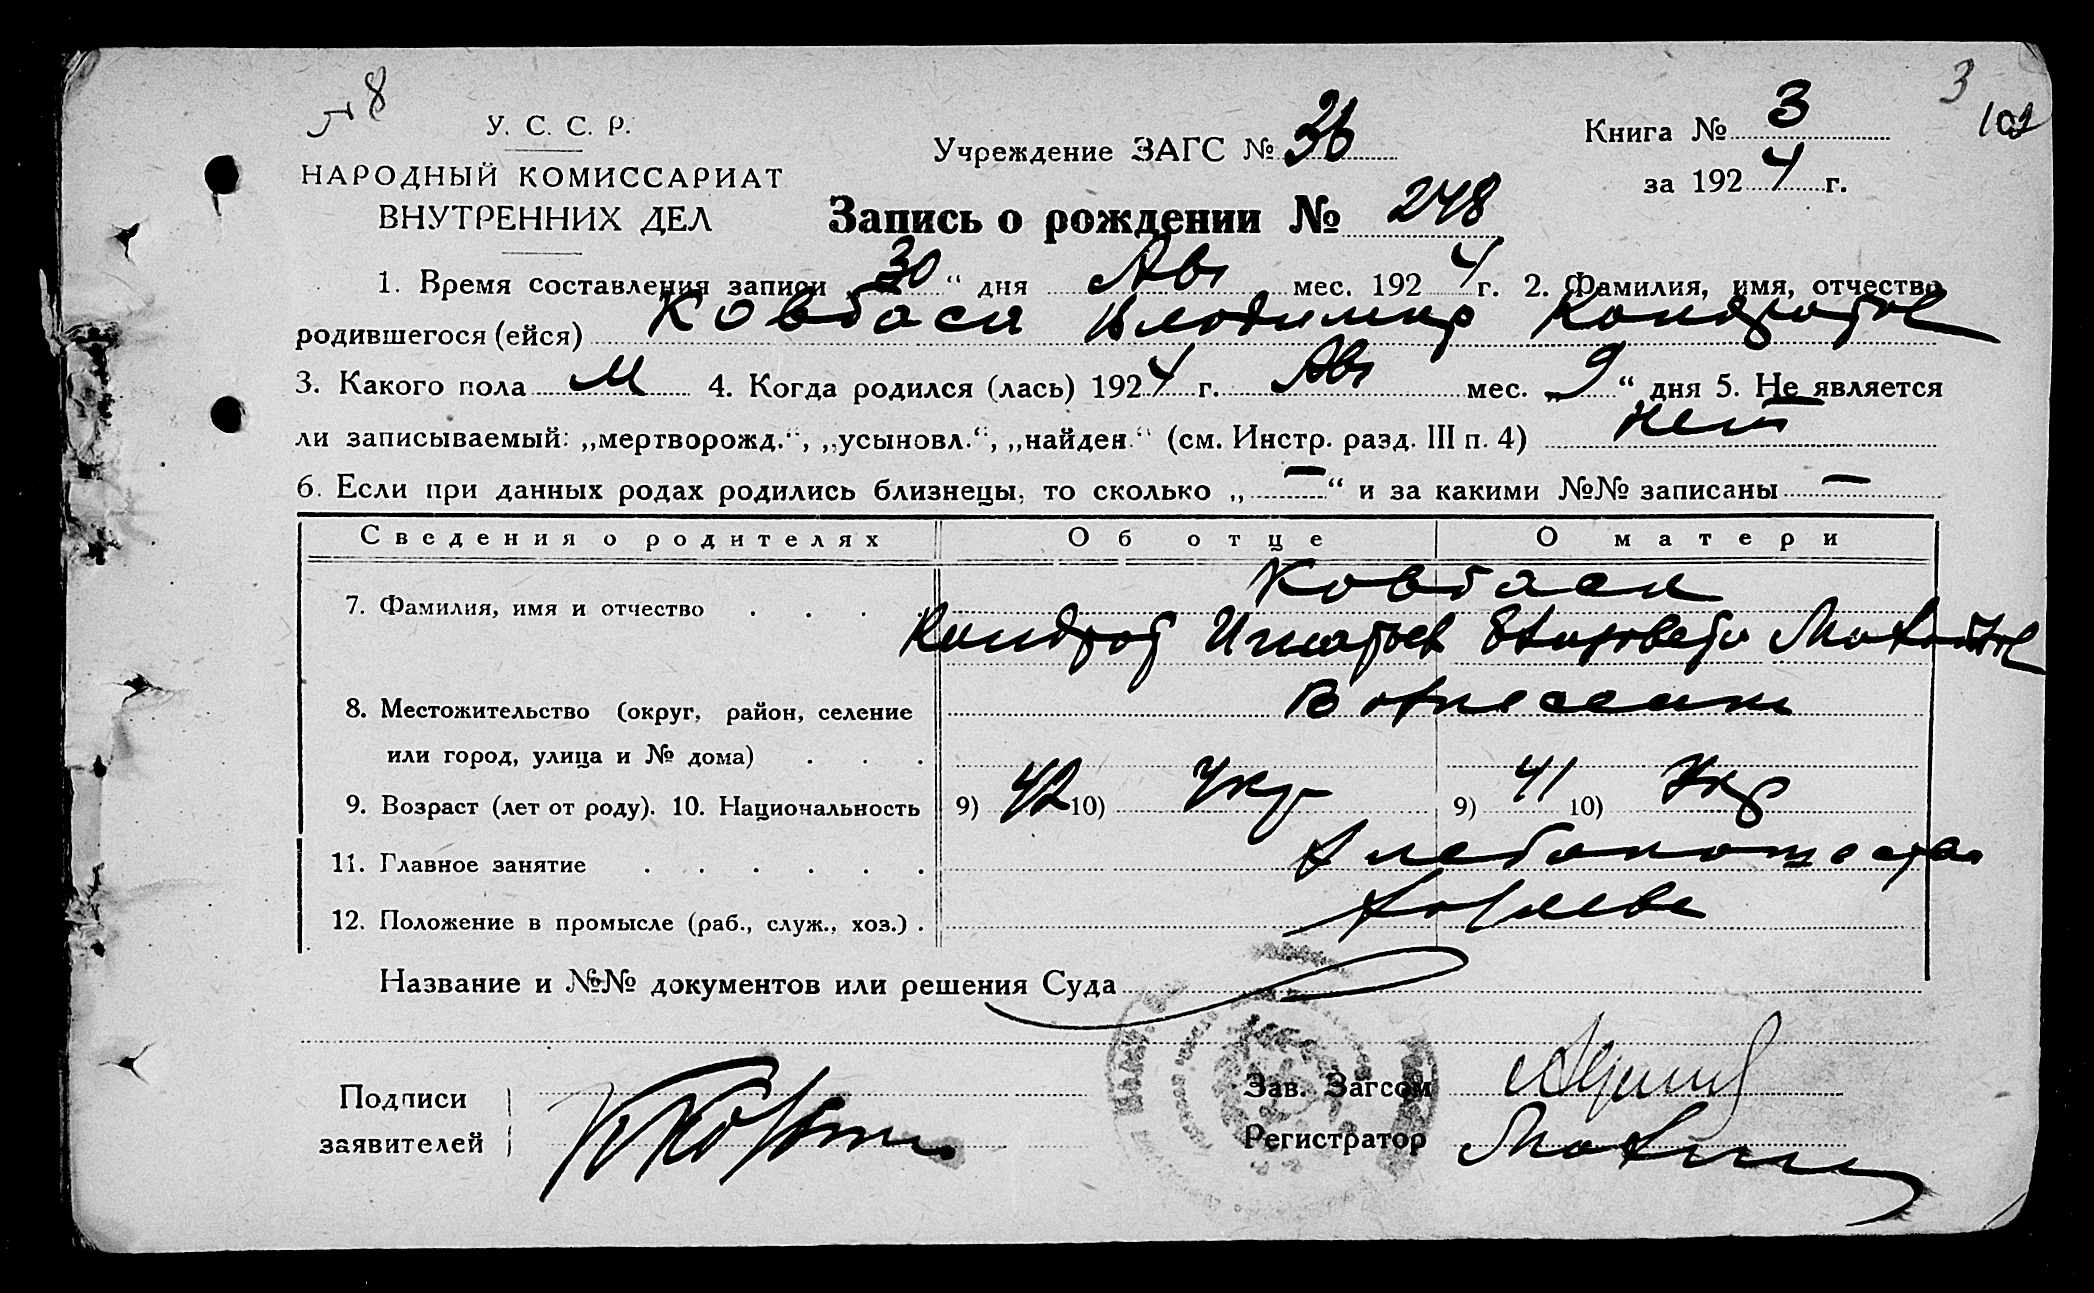 8
3
102
У. С. С. Р.
НАРОДНЫЙ КОМИССАРИАТ
ВНУТРЕННИХ ДЕЛ
Учреждение ЗАГС № 36
Книга № 3
за 1924 г.
Запись о рождении № 248
1. Время составления записи „30“ дня Авг мес. 1924 г. 2. Фамилия, имя, отчество
родившегося (ейся) Ковбаса Владимир Кондратов
3. Какого пола М 4. Когда родился (лась) 1924 г. Авг мес. „9“ дня 5. Не является
ли записываемый: „мертворожд.“, „усыновл.“, „найден.“ (см. Инстр. разд. III п. 4) нет
6. Если при данных родах родились близнецы, то сколько „—“ и за какими №№ записаны —
Сведения о родителях Об отце О матери
Ковбаса
7. Фамилия, имя и отчество . . . .
Кондрат Игнатьев
8. Местожительство (округ, район, селение
или город, улица и № дома) . . .
9. Возраст (лет от роду). 10. Национальность 9) 42 10) Укр 9) 41 10) Укр
11. Главное занятие . . . . . . Хлебопашество
12. Положение в промысле (раб., служ., хоз.) . хозяева
Название и №№ документов или решения Суда
Подписи
заявителей
Зав. Загсом
Регистратор